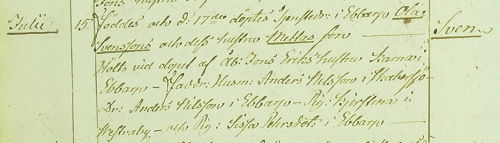 Julii
15 föddes och d: 17de döptes Tjenstedr: i Ebbarp Ola
Svenssons och dess hustru son
Sven
hölts vid dopet af Åb: Jöns Eriks hustru Karna i
Ebbarp - Fadr: Husm: Anders Nilsson i
Dr: Anders Nilsson i Ebbarp - Pig: Kjerstina i
Westraby - och Pig: Sissa Pehrsdotr i Ebbarp